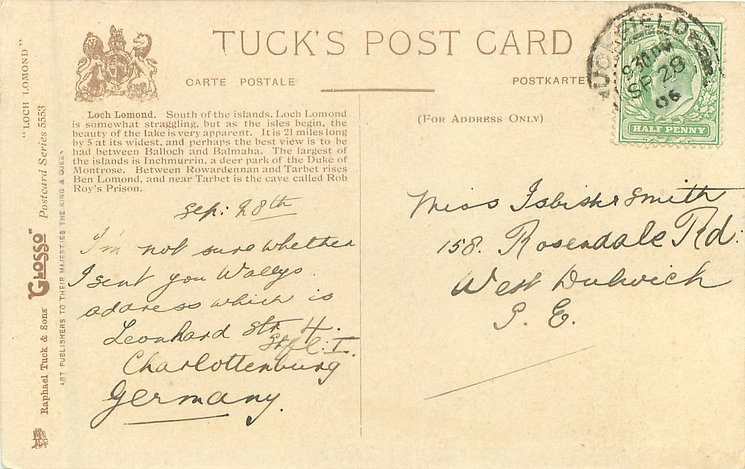 TUCK'S POST CARD
CARTE POSTALE
POSTKARTE
Loch Lomond. South of the islands, Loch Lomond
is somewhat straggling, but as the isles begin, the
beauty of the lake is very apparent. It is 21 miles long
by 5 at its widest, and perhaps the best view is to be
had between Balloch and Balmaha. The largest of
the islands is Inchmurrin, a deer park of the Duke of
Montrose. Between Rowardennan and Tarbet rises
Ben Lomond, and near Tarbet is the cave called Rob
Roy's Prison.
Sep: 28th
I'm not sure whether
I sent you Wallys.
address which is
Leonhard Str 4.
I.
Charlottenburg
Germany.
(FOR ADDRESS ONLY)
Miss Isbister Smith
158. Rosendale Rd:
West Dulwich
S. E.
UCKFIELD
8 30 PM
SP 28
06
HALF PENNY
"LOCH LOMOND"
Raphael Tuck & Sons' "GLOSSO" Postcard Series 5553
ART PUBLISHERS TO THEIR MAJESTIES THE KING & QUEEN